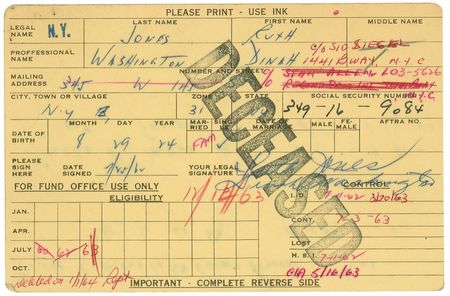 PLEASE PRINT - USE INK
LEGAL NAME N.Y. LAST NAME Jones FIRST NAME Ruth MIDDLE NAME
PROFFESSIONAL NAME Washington Dinah c/o SID SIEGEL
1441 B'WAY, N.Y.C
MAILING ADDRESS 345 W NUMBER AND STREET c/o LO3-5626
CITY, TOWN OR VILLAGE ZONE STATE SOCIAL SECURITY NUMBER N.Y.C.
N.Y. 31 349-16-9084
DATE OF BIRTH MONTH DAY YEAR MAR- DATE OF MARRIAGE MALE FE-MALE AFTRA NO.
8 29 24 FAM
PLEASE SIGN HERE DATE SIGNED YOUR LEGAL SIGNATURE Ruth Jones
Dinah Washington
FOR FUND OFFICE USE ONLY 12/14/63 CONTROL
ELIGIBILITY I.D. 7-11-62 3/20/63
JAN.
APR. CONT. 7-3-63
JULY 60 62 63 LOST
OCT. H.S.I. 7-11-62
deleted on 1/1/64 Rept CIA 5/16/63
IMPORTANT - COMPLETE REVERSE SIDE
DECEASED